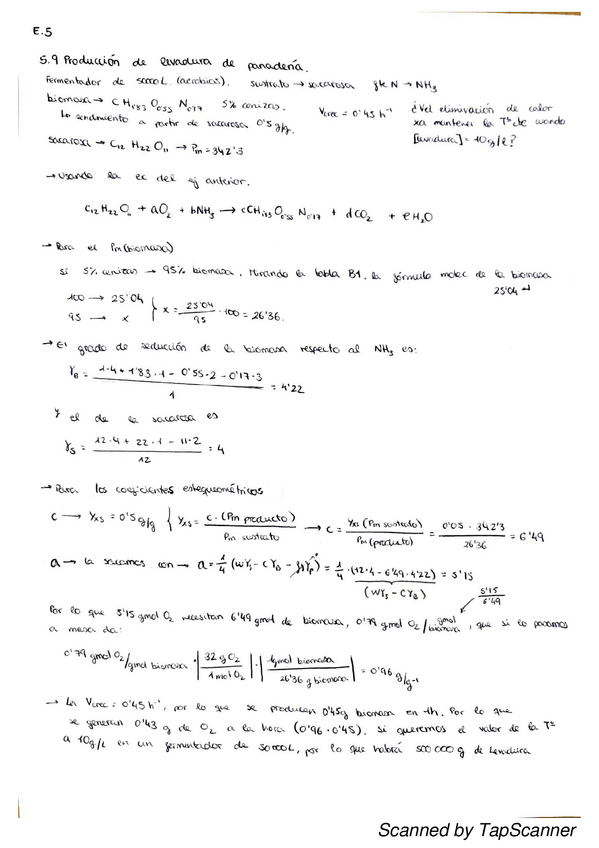 E.5
5.9 Producción de levadura de panadería.
Fermentador de 50000L. (aerobios). sustrato → sacarosa fte N → NH3
biomasa → CH1'83 O0'55 N0'17 5% cenizas. Vcrec = 0'45 h⁻¹ ¿Vel eliminación de calor
Lo rendimiento a partir de sacarosa 0'5 g/g. xa mantener la Tª cte cuando
sacarosa → C12 H22 O11 → Pm = 342'3 [levadura] = 10g/l?
→ Usando la ec del ej anterior.
C12 H22 O11 + aO2 + bNH3 → cCH1'83 O0'55 N0'17 + dCO2 + eH2O
→ Para el Pm (biomasa)
si 5% cenizas → 95% biomasa. Mirando la tabla B1, la fórmula molec de la biomasa
25'04
100 → 25'04
95 → x } x = 25'04/95 · 100 = 26'36.
→ El grado de reducción de la biomasa respecto al NH3 es:
γB = (1·4 + 1'83·1 - 0'55·2 - 0'17·3)/1 = 4'22
Y el de la sacarosa es
γs = (12·4 + 22·1 - 11·2)/12 = 4
→ Para los coeficientes estequeométricos
c → Yxs = 0'5 g/g { Yxs = c·(Pm producto)/Pm sustrato → c = Yxs (Pm sustrato)/Pm (producto) = 0'05 · 342'3/26'36 = 6'49
a → la sacamos con → a = 1/4 (wγs - cγB - fjγp) = 1/4 · (12·4 - 6'49·4'22) = 5'15
(wγs - cγB) 5'15/6'49
Por lo que 5'15 gmol O2 necesitan 6'49 gmol de biomasa, 0'79 gmol O2/gmol biomasa, que si lo pasamos
a masa da:
0'79 gmol O2/gmol biomasa · | 32 g O2/1 mol O2 | · | 1gmol biomasa/26'36 g biomasa | = 0'96 g/g⁻¹
→ La Vcrec = 0'45 h⁻¹, por lo que se producen 0'45g biomasa en 1h. Por lo que
se generan 0'43 g de O2 a la hora (0'96·0'45). Si queremos el valor de la Tª
a 10g/L en un fermentador de 50000L, por lo que habrá 500 000 g de levadura
Scanned by TapScanner